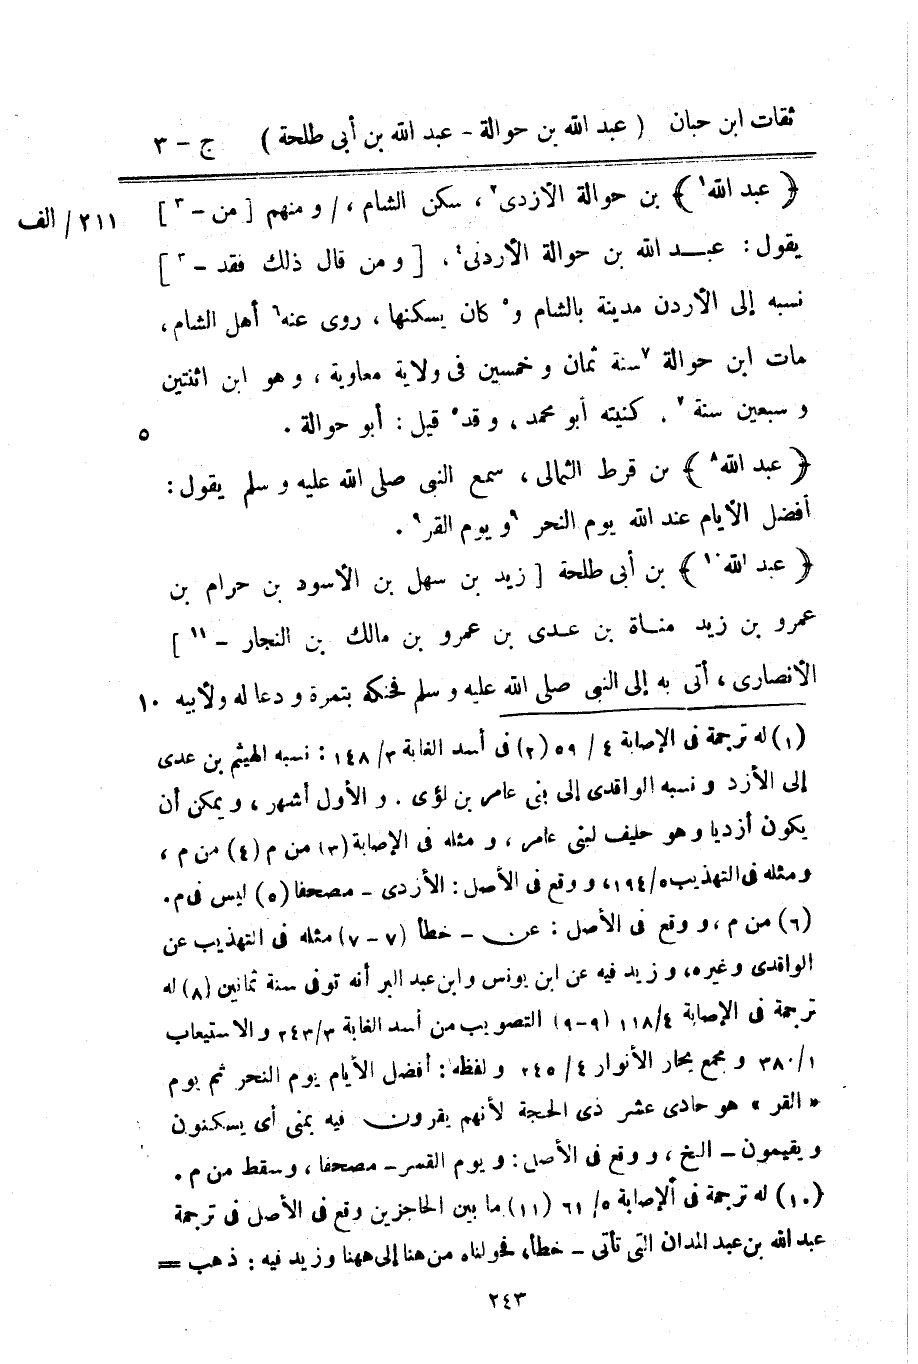 ثقات ابن حبان ( عبد الله بن حوالة - عبد الله بن أبى طلحة ) ج - ٣
﴿ عبد الله١ ﴾ بن حوالة الأزدى٢ ، سكن الشام ، / و منهم [ من -٣ ] ٢١١/ الف
يقول : عبد الله بن حوالة الأردنى٤ ، [ و من قال ذلك فقد -٣ ]
نسبه إلى الأردن مدينة بالشام و٥ كان يسكنها ، روى عنه٦ أهل الشام ،
مات ابن حوالة ٧سنة ثمان و خمسين فى ولاية معاوية ، و هو ابن اثنتين
و سبعين سنة٧ . كنيته أبو محمد ، و قد٥ قيل : أبو حوالة . ٥
﴿ عبد الله٨ ﴾ بن قرط الثمالى ، سمع النبى صلى الله عليه و سلم يقول :
أفضل الأيام عند الله يوم النحر ٩و يوم القر٩ .
﴿ عبد الله١٠ ﴾ بن أبى طلحة [ زيد بن سهل بن الأسود بن حرام بن
عمرو بن زيد مناة بن عدى بن عمرو بن مالك بن النجار -١١ ]
الأنصارى ، أتى به إلى النبى صلى الله عليه و سلم فحنكه بتمرة و دعا له ولأبيه ١٠
(١) له ترجمة فى الإصابة ٤ / ٥٩ (٢) فى أسد الغابة ٣/ ١٤٨ : نسبه الهيثم بن عدى
إلى الأزد و نسبه الواقدى إلى بنى عامر بن لؤى . و الأول أشهر ، و يمكن أن
يكون أزديا و هو حليف لبنى عامر ، و مثله فى الإصابة (٣) من م (٤) من م ،
و مثله فى التهذيب ٥/ ١٩٤، و وقع فى الأصل : الأزدى - مصحفا (٥) ليس فى م.
(٦) من م ، و وقع فى الأصل : عن - خطأ (٧ - ٧) مثله فى التهذيب عن
الواقدى و غيره، و زيد فيه عن ابن يونس و ابن عبد البر أنه توفى سنة ثمانين (٨) له
ترجمة فى الإصابة ٤/ ١١٨ (٩-٩) التصويب من أسد الغابة ٣/ ٢٤٣ و الاستيعاب
١/ ٣٨٠ و مجمع بحار الأنوار ٤ / ٢٤٥ و لفظه : أفضل الأيام يوم النحر ثم يوم
« القر » هو حادى عشر ذى الحجة لأنهم يقرون فيه بمنى أى يسكنون
و يقيمون - الخ ، و وقع فى الأصل : و يوم القسر - مصحفا ، و سقط من م .
(١٠) له ترجمة فى الإصابة ٥/ ٦١ (١١) ما بين الحاجزين وقع فى الأصل فى ترجمة
عبد الله بن عبد المدان التى تأتى - خطأ، فحولناه من هنا إلى ههنا و زيد فيه : ذهب =
٢٤٣